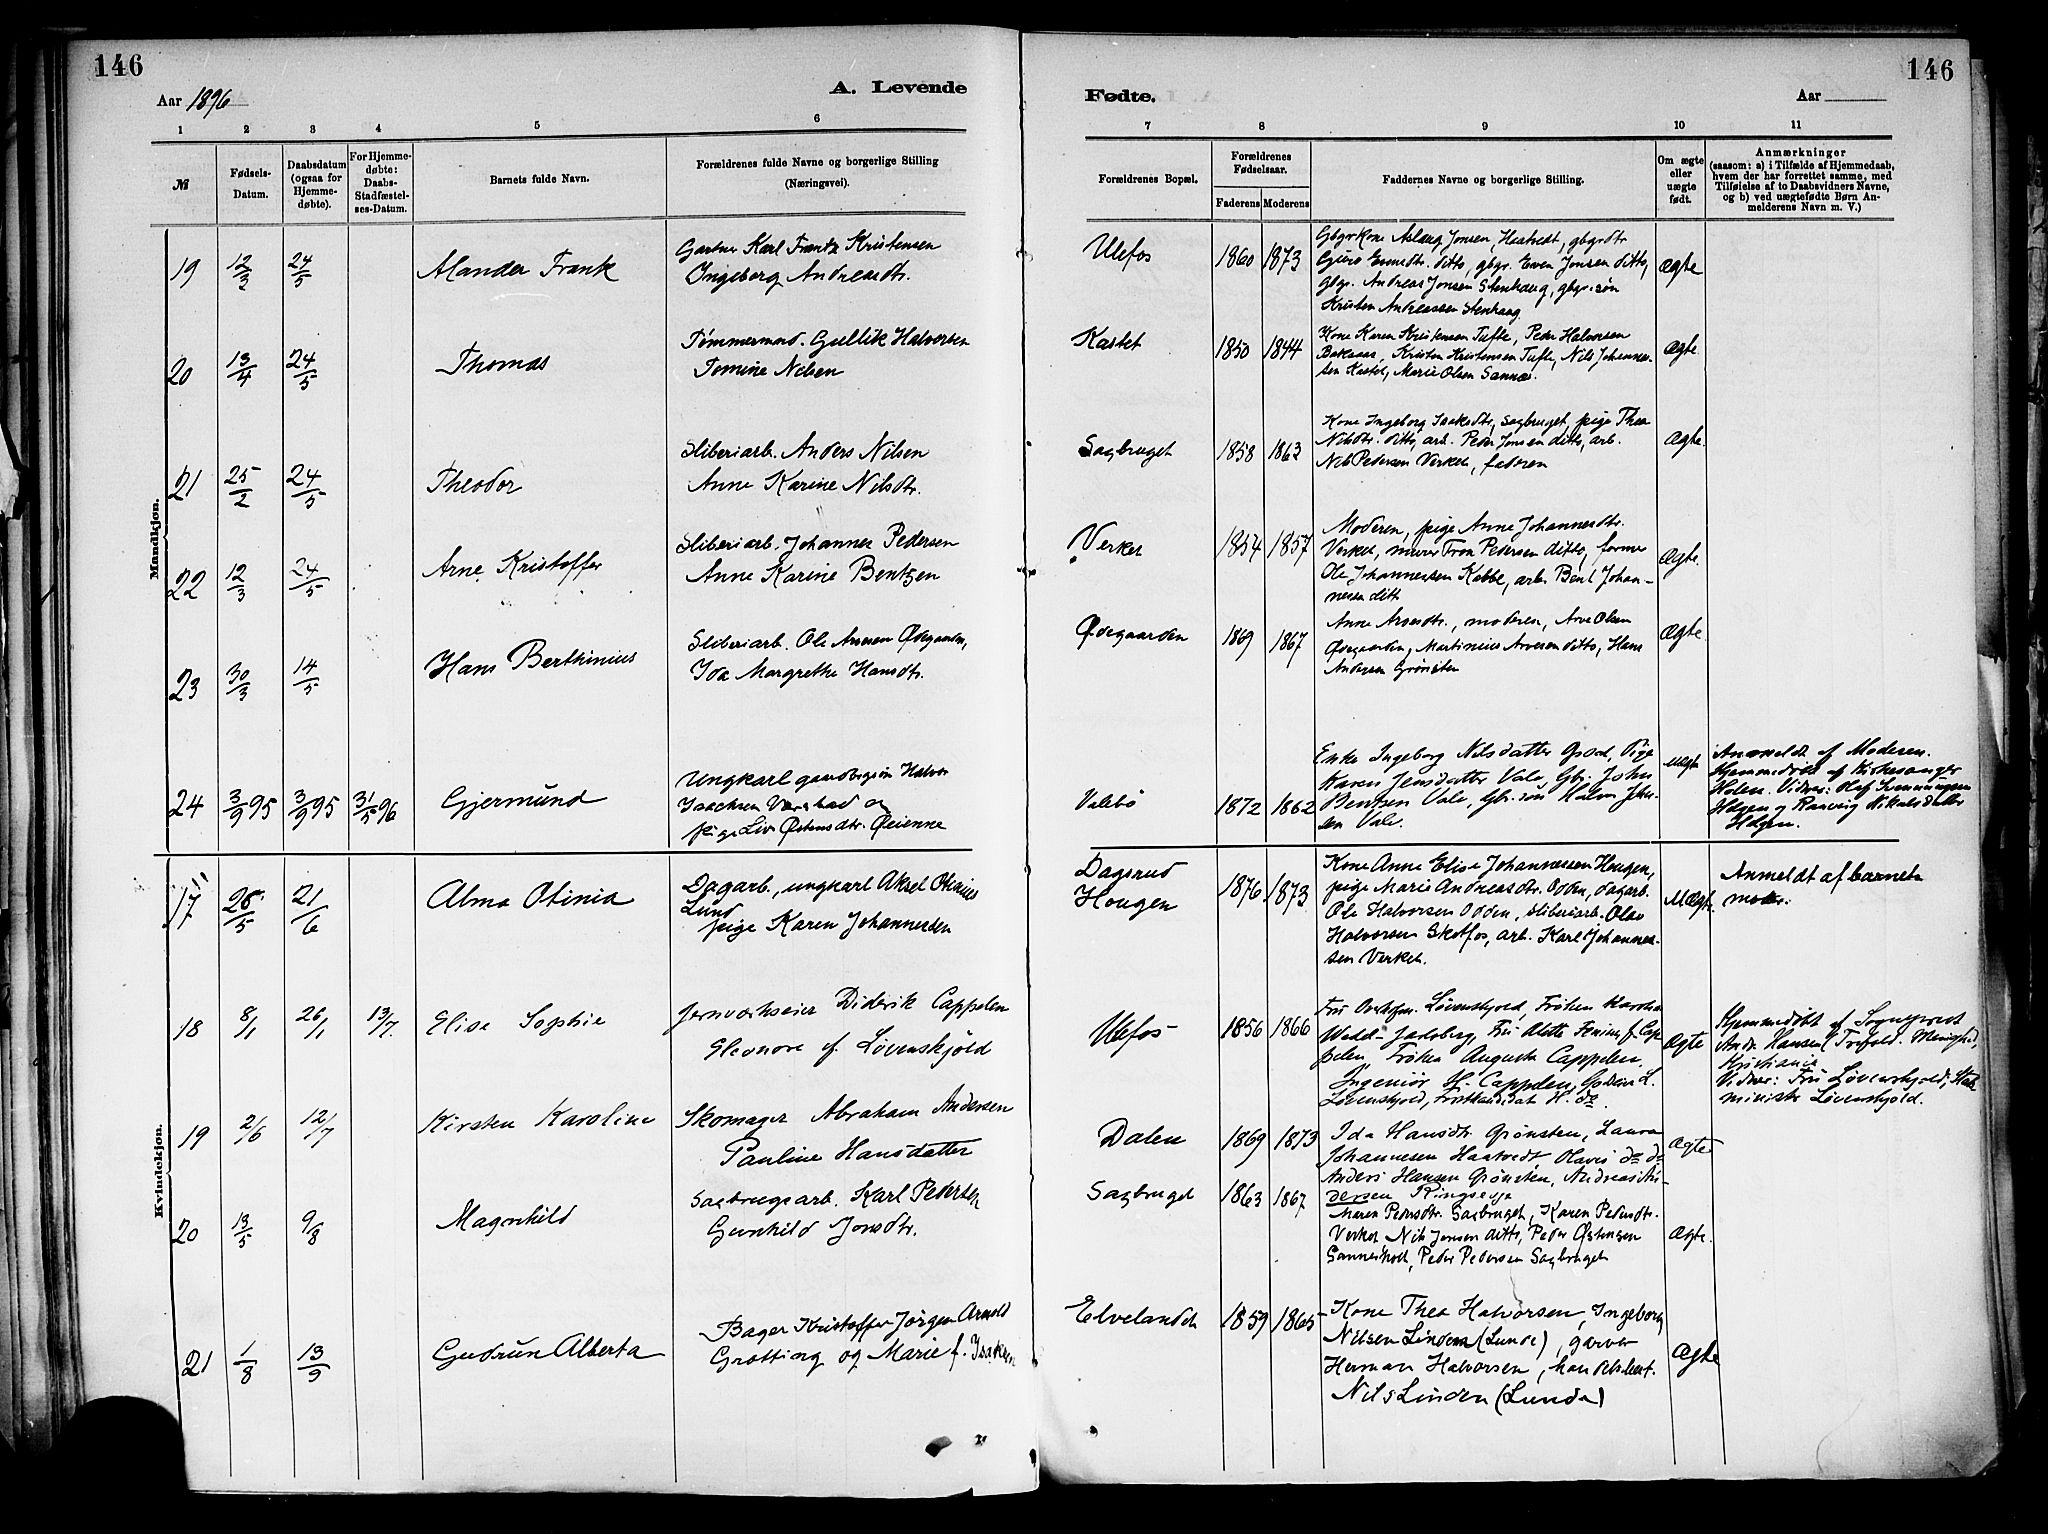 146
146
Aar 1896
A. Levende
Fødte.
Aar
1 2 3 4 5 6 7 8 9 10 11
№
Fødsels-Datum.
Daabsdatum (ogsaa for Hjemme-døbte).
For Hjemme-døbte: Daabs-Stadfæstel-ses-Datum.
Barnets fulde Navn.
Forældrenes fulde Navne og borgerlige Stilling (Næringsvei).
Forældrenes Bopæl.
Forældrenes Fødselsaar.
Faderens Moderens
Faddernes Navne og borgerlige Stilling.
Om ægte eller uægte født.
Anmærkninger
(saasom: a) i Tilfælde af Hjemmedaab,
hvem der har forrettet samme, med
Tilføielse af to Daabsvidners Navne,
og b) ved uægtefødte Børn An-
melderens Navn m. V.)
Mandkjøn.
19 12/3 24/5 Alander Frank
Gartner Karl Frantz Kristensen
Ingeborg Andreasdtr.
Ulefos 1860 1873
Gbgrkone Aslaug Jonsen, Haatvedt, gbgrdtr
ditto, gbgr. Even Jonsen ditto,
gbgr. Andreas Jonsen Stenhaug, gbgr.søn
Kristen Andreassen Stenhaug
Ægte
20 13/4 24/5 Thomas
Tømmermand. Gullik Halvorsen
Tomine Nilsen
Kastet 1850 1844
Kone Karen Kristensen Tufte, Peder Halvorsen
Bakaas, Kristen Kristensen Tufte, Nils Johannes-
sen Kastet, Marie Olsen Sannes.
Ægte
21 25/2 24/5 Theodor
Sliberiarb. Anders Nilsen
Anne Karine Nilsdtr.
Sagbruget 1858 1863
Kone Ingeborg Isaksdtr, Sagbruget, pige Thea
Nilsdtr. ditto, arb. Peder Jonsen ditto, arb.
Nils Pedersen Verket, faderen
Ægte
22 12/3 24/5 Arne Kristoffer
Sliberiarb. Johannes Pedersen
Anne Karine Bentzen
Verket 1854 1857
Moderen, pige Anne Johannesdtr.
Verket, murer Tron Pedersen ditto, former
Ole Johannessen Kabbe, arb. Bent Johan-
nesen ditto
Ægte.
23 30/3 14/5 Hans Berthinius
Sliberiarb. Ole Arvesen Ødegaarden,
Ida Margrethe Hansdtr.
Ødegaarden 1869 1867
Anne Arvesdtr., moderen, Arve Olsen
Ødegaarden, Martinius Arvesen ditto, Hans
Andersen Grønsten
Ægte.
24 3/9 95 3/9 95 31/5 96 Gjermund
Ungkarl gaardbrgsøn Halvor
Isachsen Varstad og
pige Liv Østensdtr. Øeienne
Valebø 1872 1862
Enke Ingeborg Nilsdatter, Pige
Karen Jensdatter Vale, Gbr. John
Bentsen Vale, Gbr. søn Halvor John-
sen Vale.
uægte
Anmeldt af Moderen.
Hjemmedøbt af Kirkesanger
Holem. Vidner: Olaf
Helgen og Nikolsdatter
Helgen.
Kvindekjøn.
17 28/5 21/6 Alma Otinia
Dagarb., ungkarl Aksel Otinius
Lund
pige Karen Johannesen
Dagsrud
Hougen 1876 1873
Kone Anne Elise Johannessen Hougen,
pige Marie Andreasdtr. Odden, dagarb.
Ole Halvorsen Odden, sliberiarb. Olav
Halvorsen Skotfos, arb. Karl Johannes-
sen Verket.
Uægte.
Anmeldt af barnets
moder.
18 8/1 26/1 13/7 Elise Sophie
Jernverkseier Diderik Cappelen
Eleonore f. Løvenskjold
Ulefos 1856 1866
Fru Løvenskjold, Frøken
Wedel-Jarlsberg, Fru f. Cap-
pelen, Frøken Augusta Cappelen.
Ingeniør H. Cappelen,
Løvenskjold, Forstkandidat H. do.
Ægte
Hjemmedøbt af Sogneprest
Andr. Hansen (Trefold. Menighed,
Kristiania
Vidner: Fru Løvenskjold, Stats
minister Løvenskjold.
19 2/6 12/7 Kirsten Karoline
Skomager Abraham Andersen
Pauline Hansdatter
Dalen 1869 1873
Ida Hansdtr. Grønsten, Laura
Johannesen Haatvedt Olavis do do
Anders Hansen Grønsten, Andreas An-
dersen Ringsevja
Ægte
20 13/5 9/8 Magnhild
Sagbrugsarb. Karl Pedersen
Gunhild Jonsdtr.
Sagbruget 1863 1867
Maren Pedersdtr. Sagbruget, Karen Pedersdtr.
Verket Nils Jonsen ditto, Peder Østensen
Sannerholt, Peder Pedersen Sagbruget
Ægte.
21 1/8 13/9 Gudrun Alberta
Bager Kristoffer Jørgen Arnold
Grotting og Marie f. Isaksen
Elvelandet 1859 1865
Kone Thea Halvorsen, Ingeborg
Nilsen Linden (Lunde), garver
Herman Halvorsen, handelsbet.
Nils Linden (Lunde)
Ægte